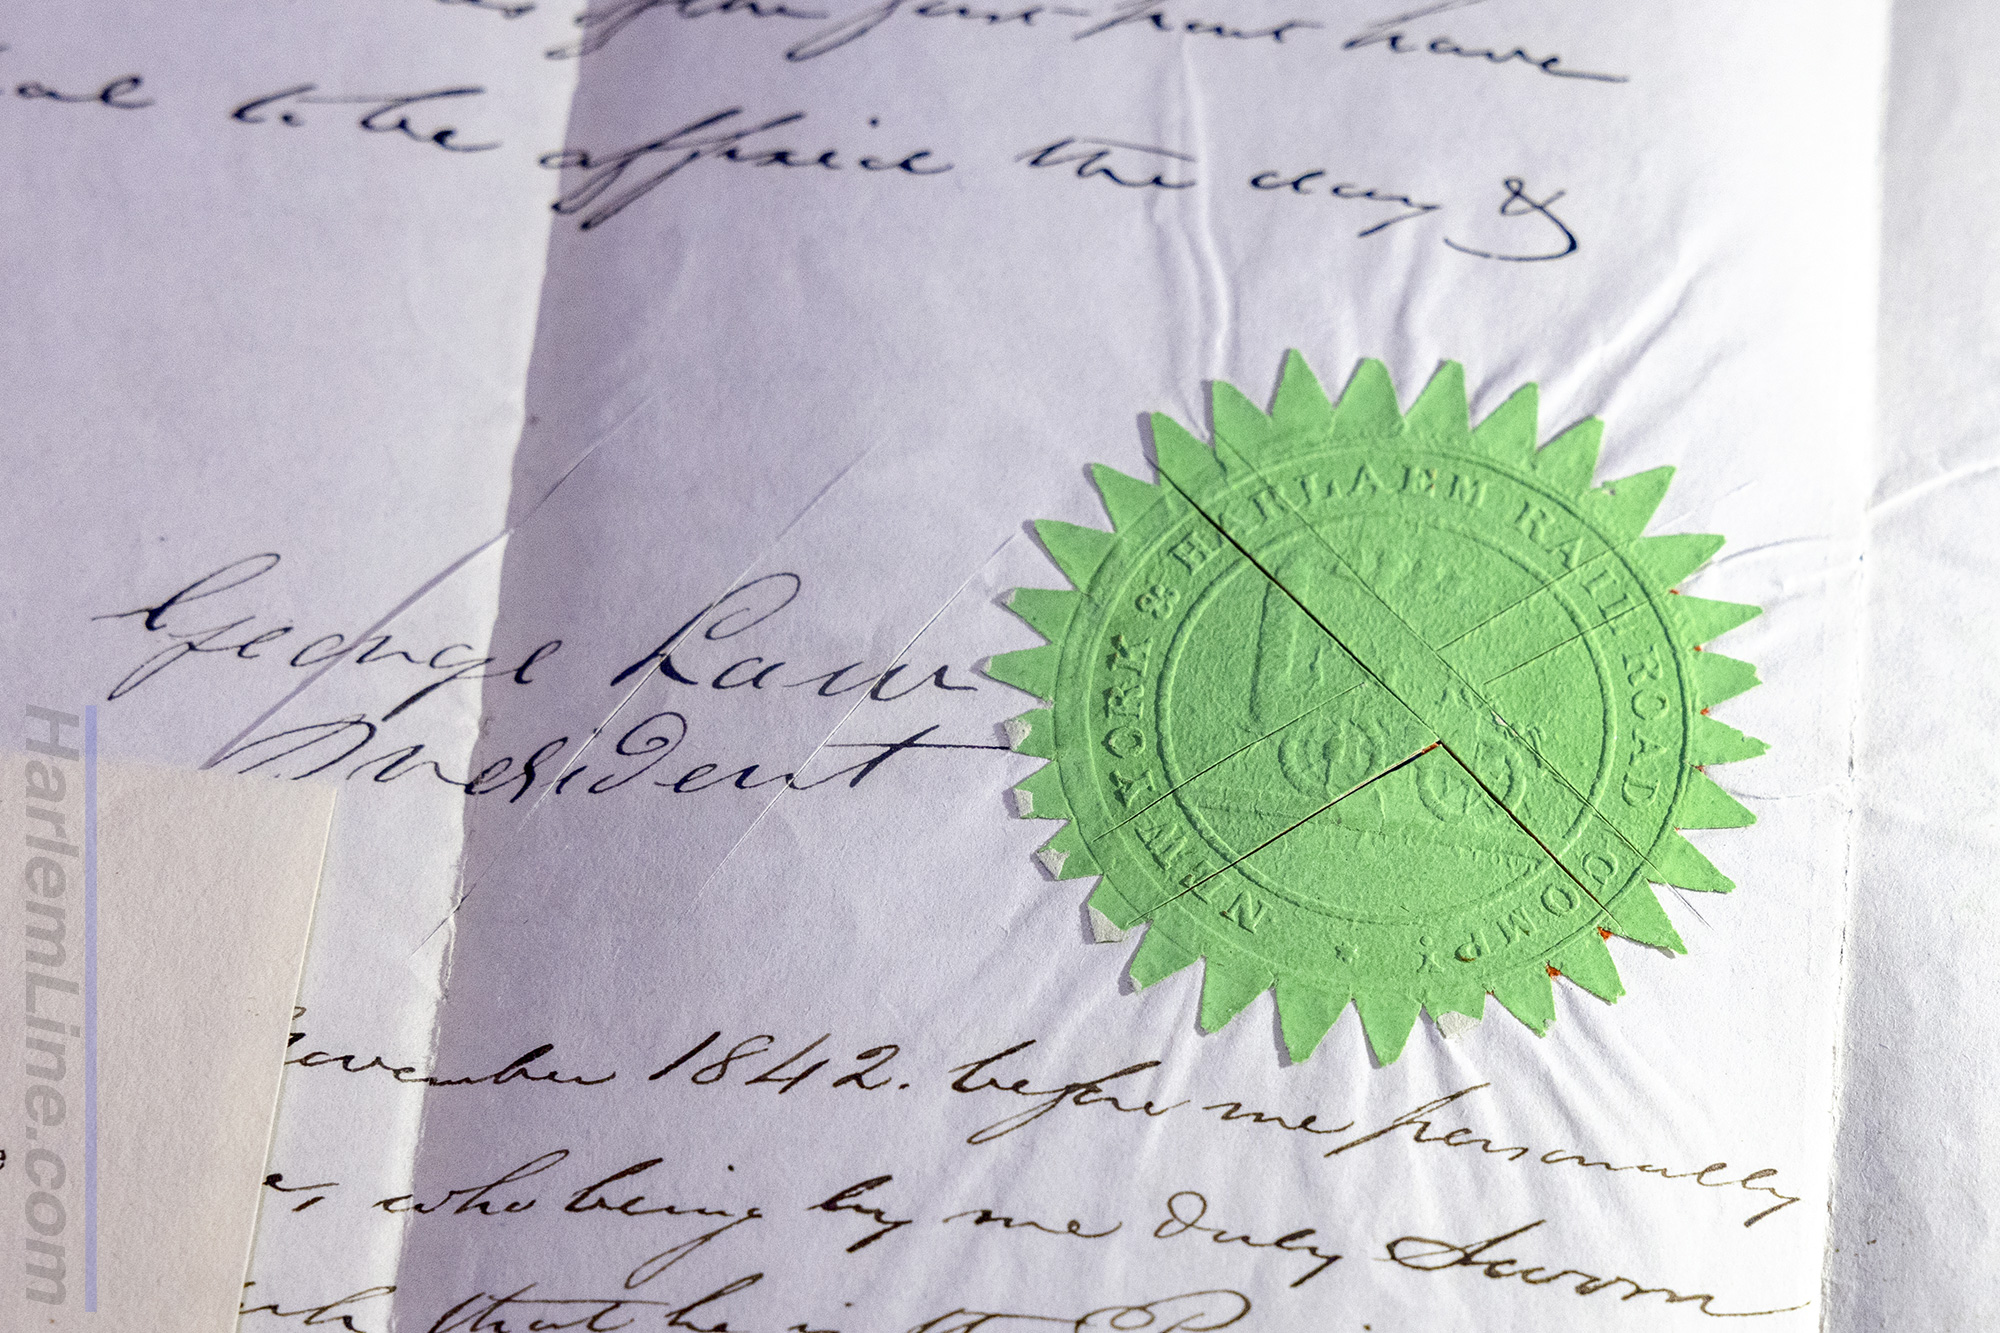 of the first part have
al to be affixed the day &
George Law
President
NEW YORK & HARLAEM RAIL ROAD COMP.
November 1842. before me personally
e, who being by me duly Sworn
that he is the
HarlemLine.com